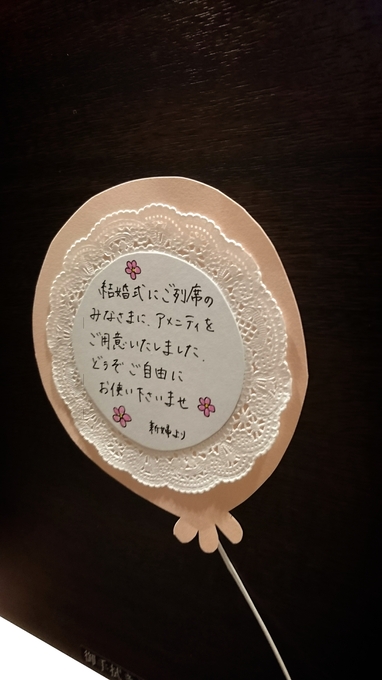 結婚式にご列席の
みなさまに、アメニティを
ご用意いたしました。
どうぞご自由に
お使い下さいませ
新婦より